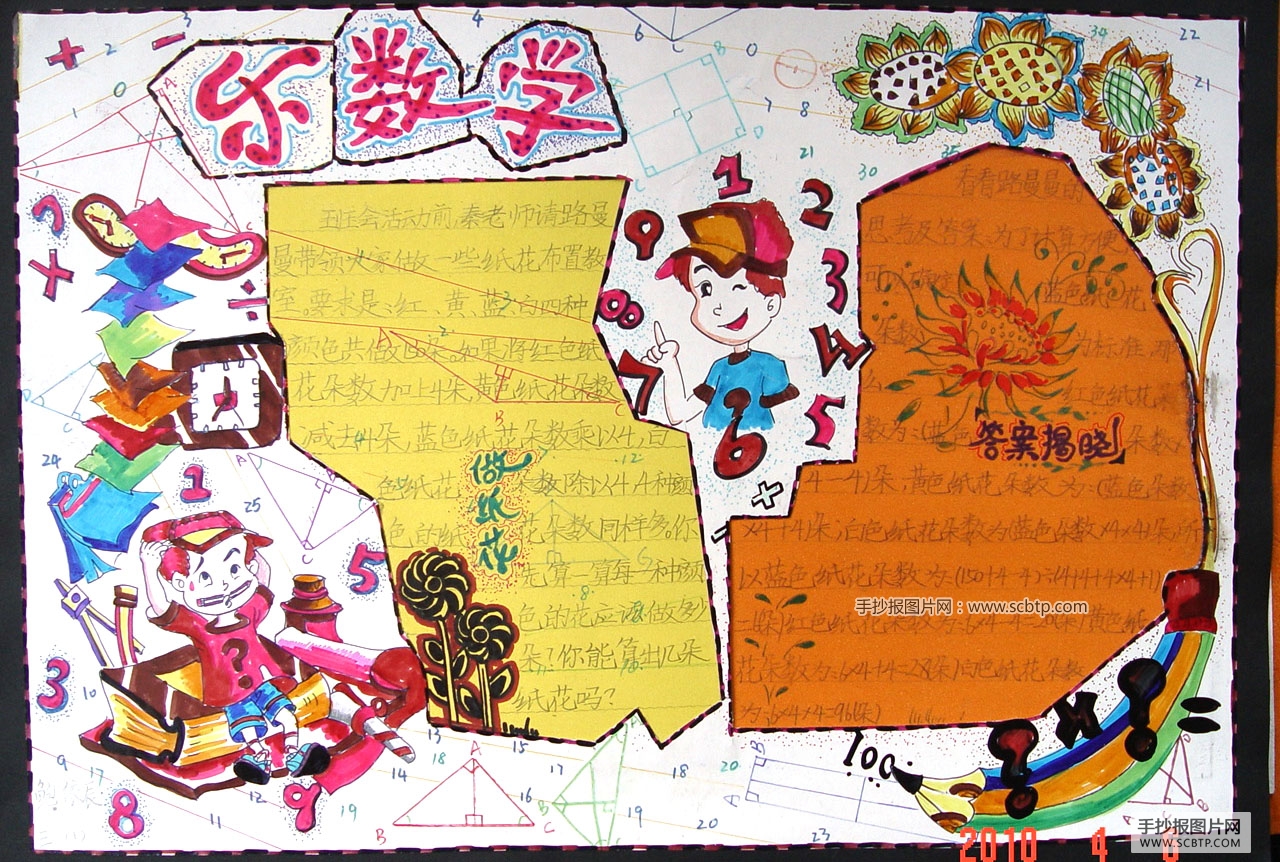 乐数学
班会活动前,秦老师请路曼
曼带领大家做一些纸花布置教
室。要求是:红、黄、蓝、白四种
颜色共做
如果将红色纸
花朵数加上4朵,黄色纸花朵数
减去4朵,蓝色纸花朵数乘以4,白
色纸花朵数除以4,4种颜
色的纸花朵数同样多。你
先算一算每一种颜
色的花应该做多少
朵?你能算出几朵
纸花吗?
做纸花
看看路曼曼的
思考及答案。为了计算方便
可以
蓝色纸花
朵数
为标准,那
么
红色纸花朵
数为:(蓝色
朵数
×4-4)朵,黄色纸花朵数为:(蓝色朵数
×4+4)朵,白色纸花朵数为(蓝色朵数×4×4)朵,所
以蓝色纸花朵数为:(150+4-4)÷(4+4+4×4+1)
=6(朵)红色纸花朵数为:6×4-4=20(朵)黄色纸
花朵数为:6×4+4=28(朵)白色纸花朵数
为:6×4×4=96(朵)
答案揭晓
1
2
3
4
5
6
7
8
9
100
手抄报图片网:www.scbtp.com
2010 4
手抄报图片网
WWW.SCBTP.COM